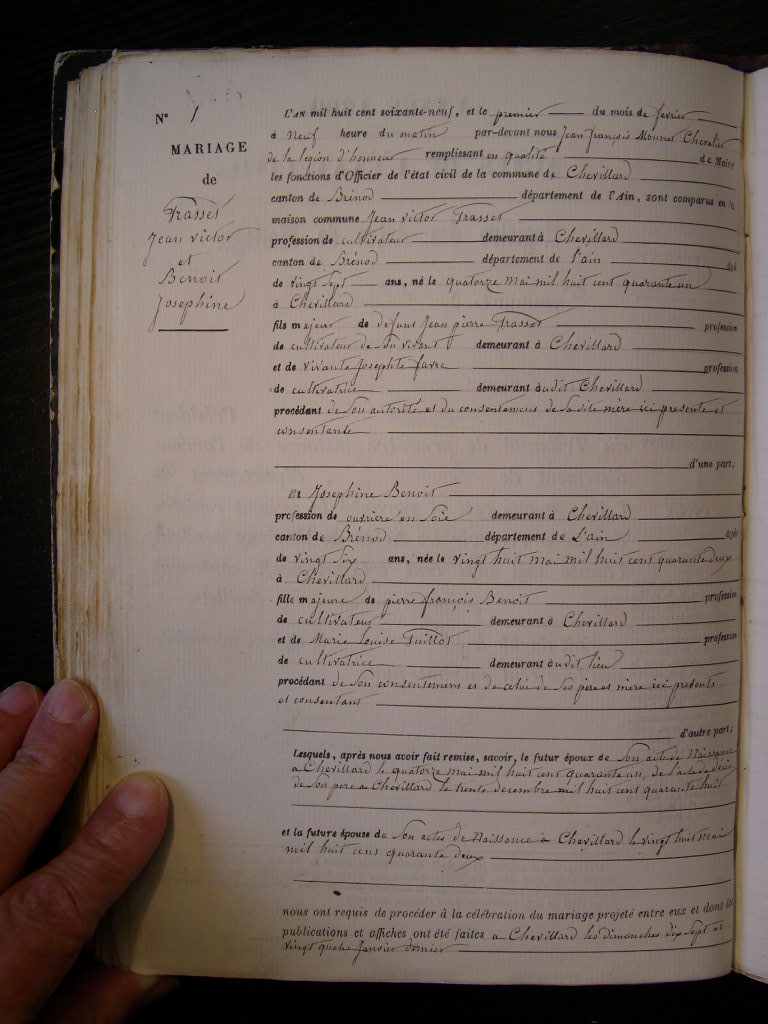 N° 1
MARIAGE
de
Frasset
Jean victor
et
Benoit
Josephine
L'AN mil huit cent soixante-neuf, et le premier du mois de fevrier
à Neuf heure du matin par-devant nous Jean françois Monnet Chevalier
de la legion d'honneur remplissant en qualité de Maire
les fonctions d'Officier de l'état civil de la commune de Chevillard
canton de Brénod département de l'Ain, sont comparus en la
maison commune Jean victor Frasset
profession de cultivateur demeurant à Chevillard
canton de Brénod département de l'ain agé
de vingt sept ans, né le quatorze mai mil huit cent quarante un
à Chevillard
fils majeur de defunt Jean pierre Frasset profession
de cultivateur de son vivant demeurant à Chevillard
et de vivante Josephte favre profession
de cultivatrice demeurant audit Chevillard
procédant de son autorité et du consentement de sa dite mère ici presente et
consentante
d'une part;
Et Josephine Benoit
profession de ouvriere en Soie demeurant à Chevillard
canton de Brénod département de L'ain agée
de vingt Six ans, née le vingt huit mai mil huit cent quarante deux
à Chevillard
fille majeure de pierre françois Benoit profession
de cultivateur demeurant à Chevillard
et de Marie Louise Tuillot profession
de cultivatrice demeurant audit lieu
procédant de son consentement et de celui de Ses pere et mère ici presents
et consentant
d'autre part;
Lesquels, après nous avoir fait remise, savoir, le futur époux de Son acte de Naissance
a Chevillard le quatorze mai mil huit cent quarante un, de l'acte de décès
de son pere a Chevillard le trente decembre mil huit cent quarante huit
et la future épouse de Son actes de Naissance a Chevillard le vingt huit mai
mil huit cens quarante deux
nous ont requis de procéder à la célébration du mariage projeté entre eux et dont les
publications et affiches ont été faites a Chevillard les dimanches dix Sept et
vingt quatre Janvier dernier